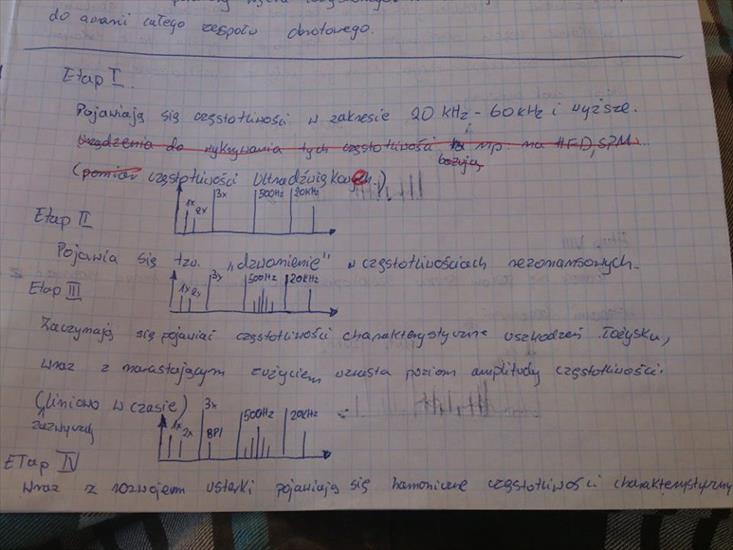 do awarii całego zespołu obrotowego.
Etap I.
Pojawiają się częstotliwości w zakresie 20 kHz - 60 kHz i wyższe.
Urządzenia do wykrywania tych częstotliwości np. na HFD, SPM...
bazują
(pomiar częstotliwości ultradźwiękowych.)
1x 2x 3x 500Hz 20kHz
Etap II
Pojawia się tzw. „dzwonienie" w częstotliwościach rezonansowych.
1x 2x 3x 500Hz 20kHz
Etap III
Zaczynają się pojawiać częstotliwości charakterystyczne uszkodzeń łożysku,
wraz z narastającym zużyciem wzrasta poziom amplitudy częstotliwości.
(liniowo w czasie)
zazwyczaj
1x 2x 3x BPI 500Hz 20kHz
ETap IV
Wraz z rozwojem usterki pojawiają się harmoniczne częstotliwości charakterystyczny